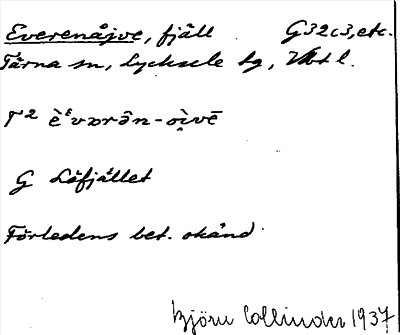 Everenåjve, fjäll G32c3, etc.
Tärna sn, Lycksele lg, Vbtl.
T2 èᵋvᴅrə̂n-òi̯vē
G Löfjället
Förledens bet. okänd
Björn Collinder 1937